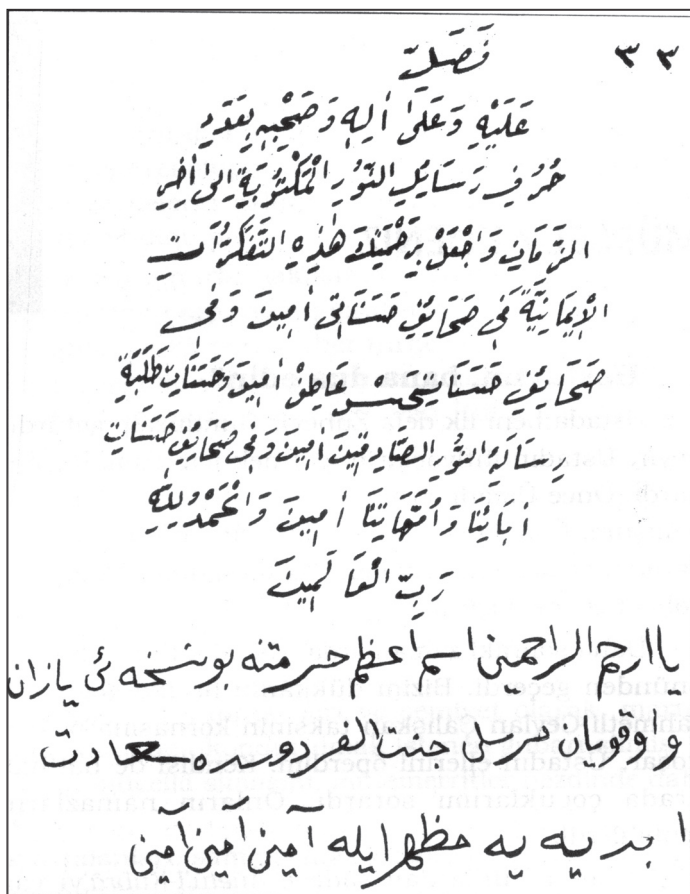 ٣٣ فَصَلِّ
عَلَيْهِ وَعَلَى اٰلِهِ وَصَحْبِهِ بِعَدَدِ
حُرُوفِ رَسَائِلِ النُّورِ الْمَكْتُوبَةِ اِلىٰ اٰخِرِ
الزَّمَانِ وَاجْعَلْ بِرَحْمَتِكَ هٰذِهِ التَّفَكُّرَاتِ
الْاِيمَانِيَّةَ فِى صَحَائِفِ حَسَنَاتِى اٰمِينَ وَفِى
صَحَائِفِ حَسَنَاتِ عاطف اٰمِينَ وَحَسَنَاتِ طَلَبَةِ
رِسَالَةِ النُّورِ الصَّادِقِينَ اٰمِينَ وَفِى صَحَائِفِ حَسَنَاتِ
اٰبَائِنَا وَاُمَّهَاتِنَا اٰمِينَ وَالْحَمْدُ لِلّٰهِ
رَبِّ الْعَالَمِينَ
يا ارحم الراحمين اسم اعظم حرمتنه بو نسخه ئى يازان
جنت الفردوسده سعادت
ابديه يه مظهر ايله آمين آمين آمين